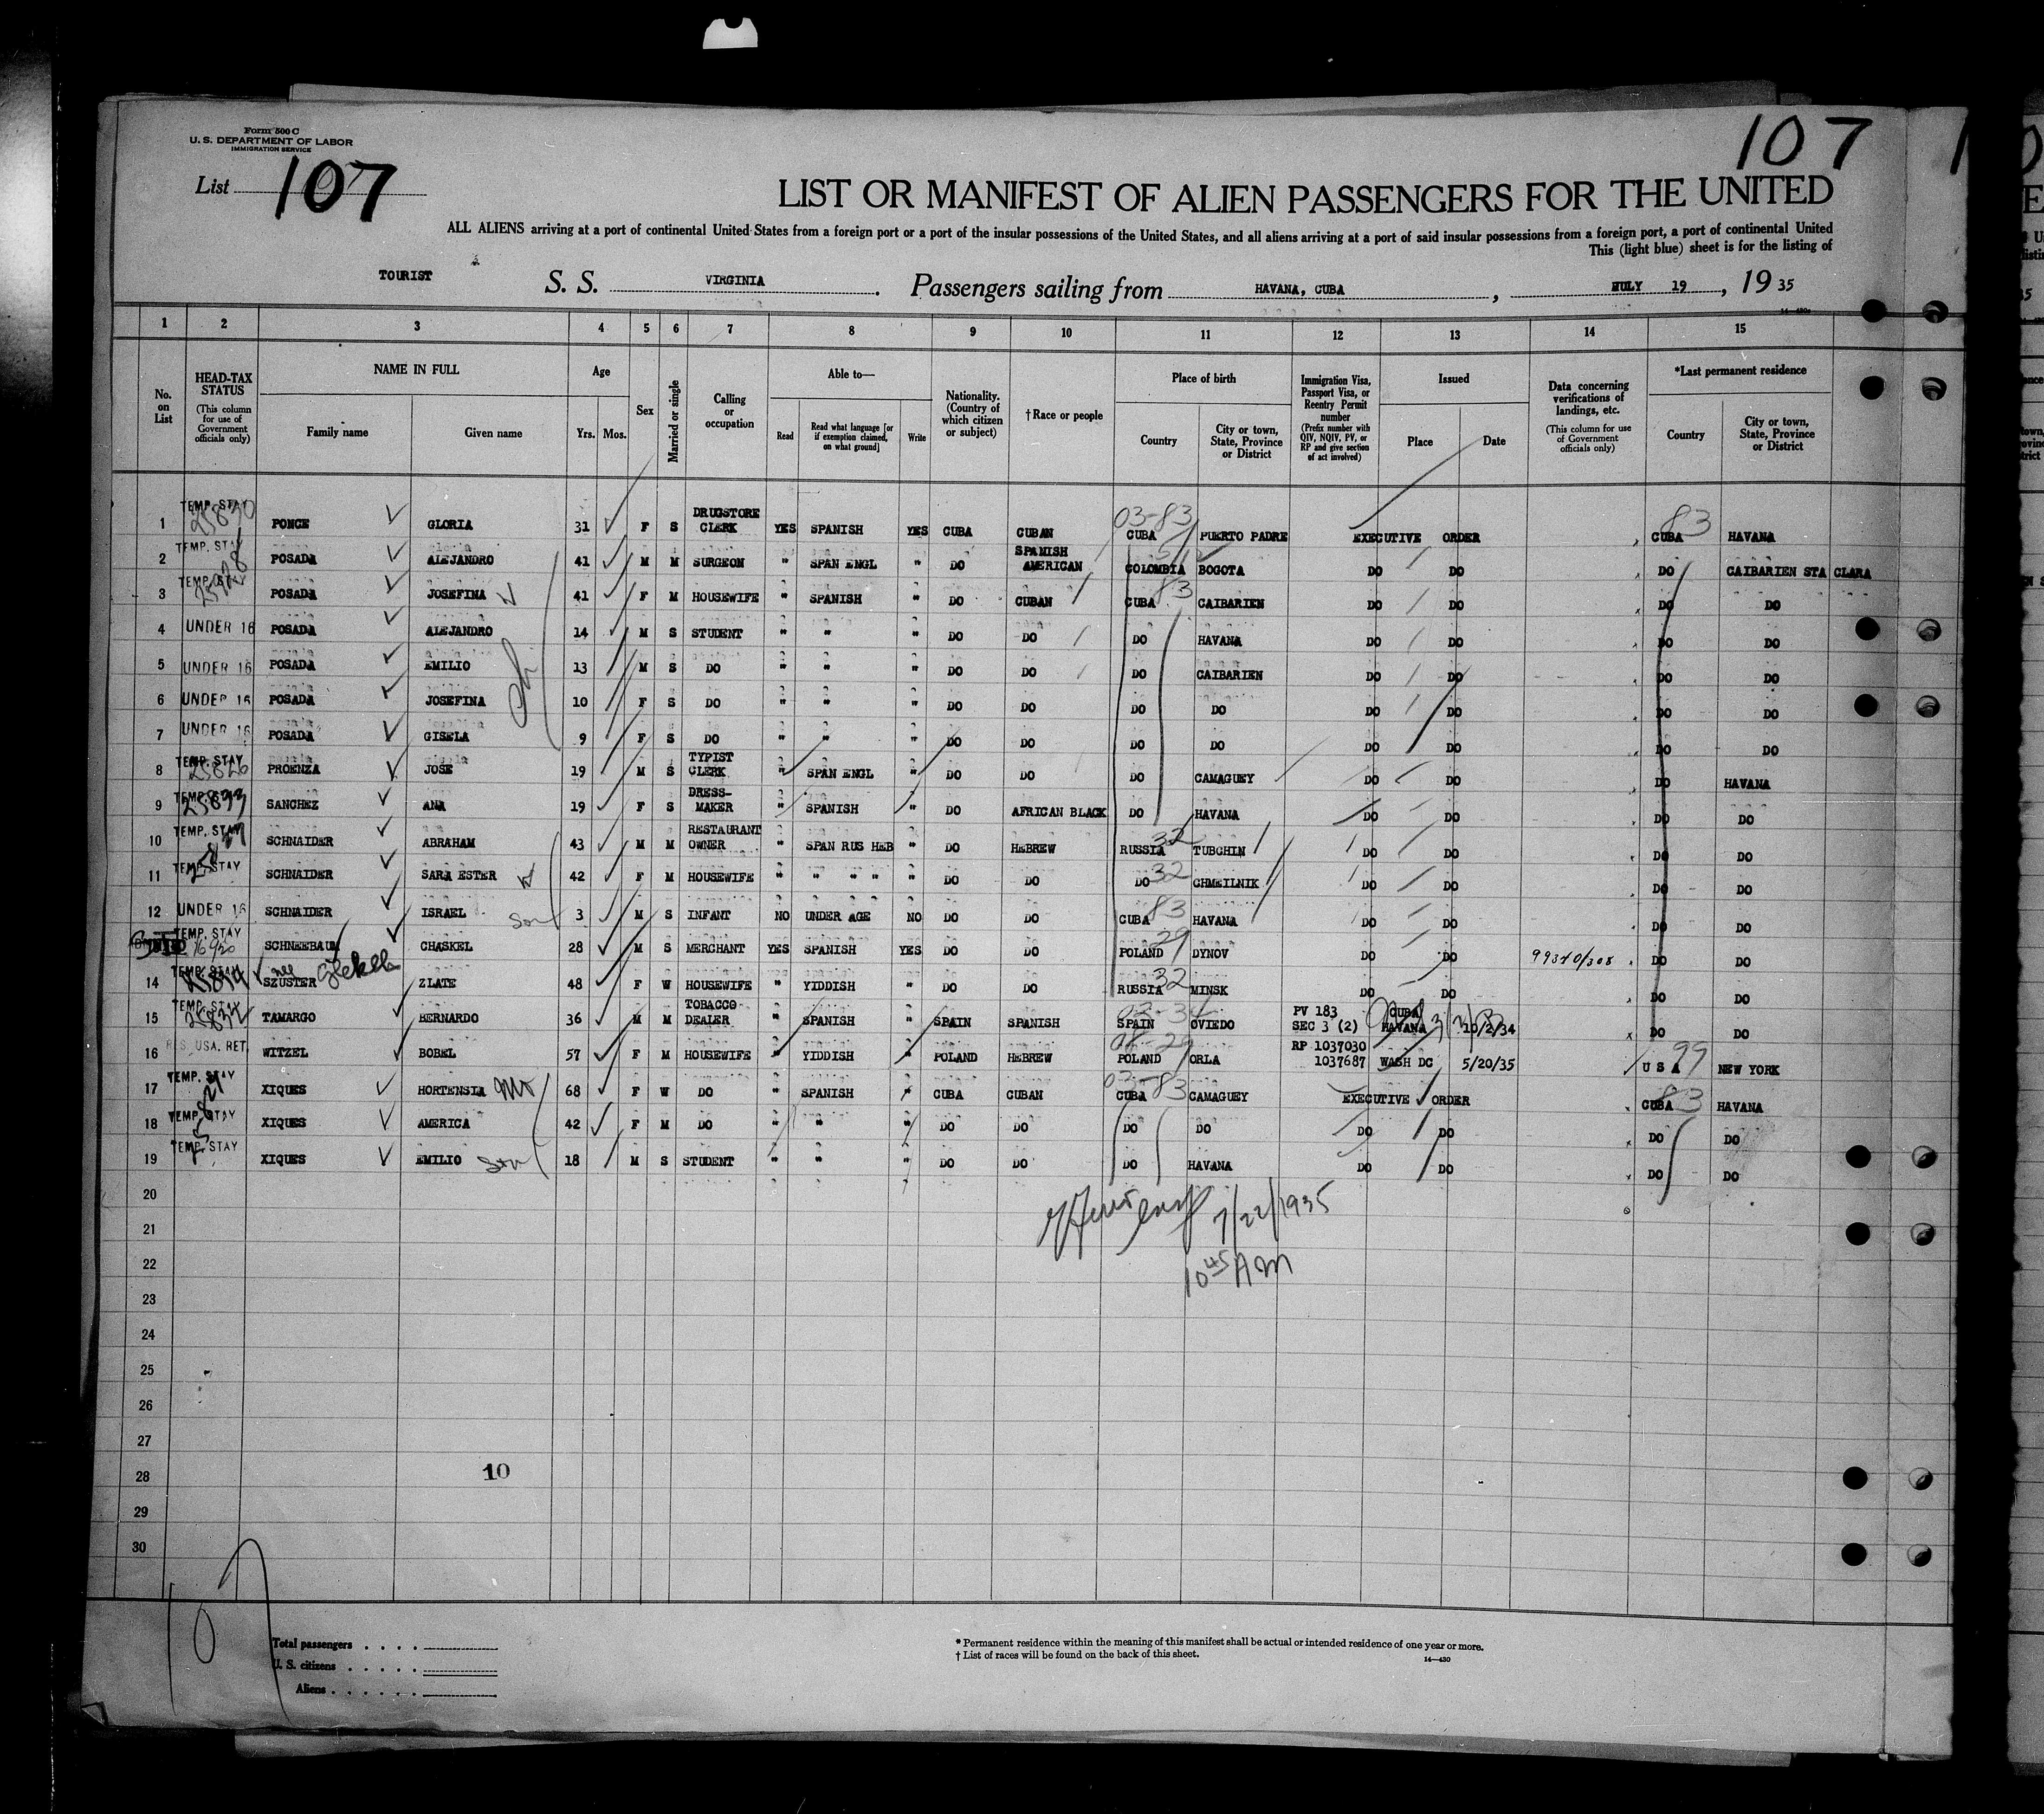 Form 500 C
U. S. DEPARTMENT OF LABOR
IMMIGRATION SERVICE
107
List 107
LIST OR MANIFEST OF ALIEN PASSENGERS FOR THE UNITED
ALL ALIENS arriving at a port of continental United States from a foreign port or a port of the insular possessions of the United States, and all aliens arriving at a port of said insular possessions from a foreign port, a port of continental United
This (light blue) sheet is for the listing of
TOURIST S. S. VIRGINIA. Passengers sailing from HAVANA, CUBA, JULY 19, 19 35
1 2 3 4 5 6 7 8 9 10 11 12 13 14 15
No. on List
HEAD-TAX STATUS (This column for use of Government officials only)
NAME IN FULL Family name Given name
Age Yrs. Mos.
Sex
Married or single
Calling or occupation
Able to— Read Read what language [or if exemption claimed, on what ground] Write
Nationality. (Country of which citizen or subject)
†Race or people
Place of birth Country City or town, State, Province or District
Immigration Visa, Passport Visa, or Reentry Permit number (Prefix number with QIV, NQIV, PV, or RP and give section of act involved)
Issued Place Date
Data concerning verifications of landings, etc. (This column for use of Government officials only)
*Last permanent residence Country City or town, State, Province or District
1 TEMP. STAY 25830 PONCE GLORIA 31 F S DRUGSTORE CLERK YES SPANISH YES CUBA CUBAN 03-83 CUBA PUERTO PADRE EXECUTIVE ORDER 83 CUBA HAVANA
2 TEMP. STAY POSADA ALEJANDRO 41 M M SURGEON " SPAN ENGL " DO SPANISH AMERICAN COLOMBIA BOGOTA DO DO DO CAIBARIEN STA CLARA
3 TEMP. STAY POSADA JOSEFINA W 41 F M HOUSEWIFE " SPANISH " DO CUBAN CUBA 83 CAIBARIEN DO DO DO DO
4 UNDER 16 POSADA ALEJANDRO 14 M S STUDENT " " " DO DO DO HAVANA DO DO DO DO
5 UNDER 16 POSADA EMILIO 13 M S DO " " " DO DO DO CAIBARIEN DO DO DO DO
6 UNDER 16 POSADA JOSEFINA 10 F S DO " " " DO DO DO DO DO DO DO DO
7 UNDER 16 POSADA GISELA 9 F S DO " " " DO DO DO DO DO DO DO DO
8 TEMP. STAY PROENZA JOSE 19 M S TYPIST CLERK " SPAN ENGL " DO DO DO CAMAGUEY DO DO DO HAVANA
9 TEMP. STAY SANCHEZ ANA 19 F S DRESS-MAKER " SPANISH " DO AFRICAN BLACK DO HAVANA DO DO DO DO
10 TEMP. STAY SCHNAIDER ABRAHAM 43 M M RESTAURANT OWNER " SPAN RUS HEB " DO HEBREW RUSSIA 32 TUBCHIN DO DO DO DO
11 TEMP. STAY SCHNAIDER SARA ESTER W 42 F M HOUSEWIFE " " " " " DO DO DO 32 CHMEILNIK DO DO DO DO
12 UNDER 16 SCHNAIDER ISRAEL son 3 M S INFANT NO UNDER AGE NO DO DO CUBA 83 HAVANA DO DO DO DO
TEMP. STAY SCHNEEBAUM CHASKEL 28 M S MERCHANT YES SPANISH YES DO DO POLAND 29 DYNOV DO DO 99340/308 DO DO
14 TEMP. STAY SZUSTER ZLATE 48 F W HOUSEWIFE " YIDDISH " DO DO RUSSIA 32 MINSK DO DO DO DO
15 TEMP. STAY 25832 TAMARGO BERNARDO 36 M M TOBACCO DEALER " SPANISH " SPAIN SPANISH SPAIN OVIEDO PV 183 SEC 3 (2) CUBA HAVANA 10/2/34 DO DO
16 RES. USA. RET. WITZEL BOBEL 57 F M HOUSEWIFE " YIDDISH " POLAND HEBREW 08-29 POLAND ORLA RP 1037030 1037687 WASH DC 5/20/35 U S A 99 NEW YORK
17 TEMP. STAY XIQUES HORTENSIA Mo 68 F W DO " SPANISH " CUBA CUBAN 03-83 CUBA CAMAGUEY EXECUTIVE ORDER CUBA 83 HAVANA
18 TEMP. STAY XIQUES AMERICA 42 F M DO " " " DO DO DO DO DO DO DO DO
19 TEMP. STAY XIQUES EMILIO son 18 M S STUDENT " " " DO DO DO HAVANA DO DO DO DO
20
7/22/1935
21
22 10 45 AM
23
24
25
26
27
28 10
29
30
107
Total passengers
U. S. citizens
Aliens
* Permanent residence within the meaning of this manifest shall be actual or intended residence of one year or more.
† List of races will be found on the back of this sheet.
14—430